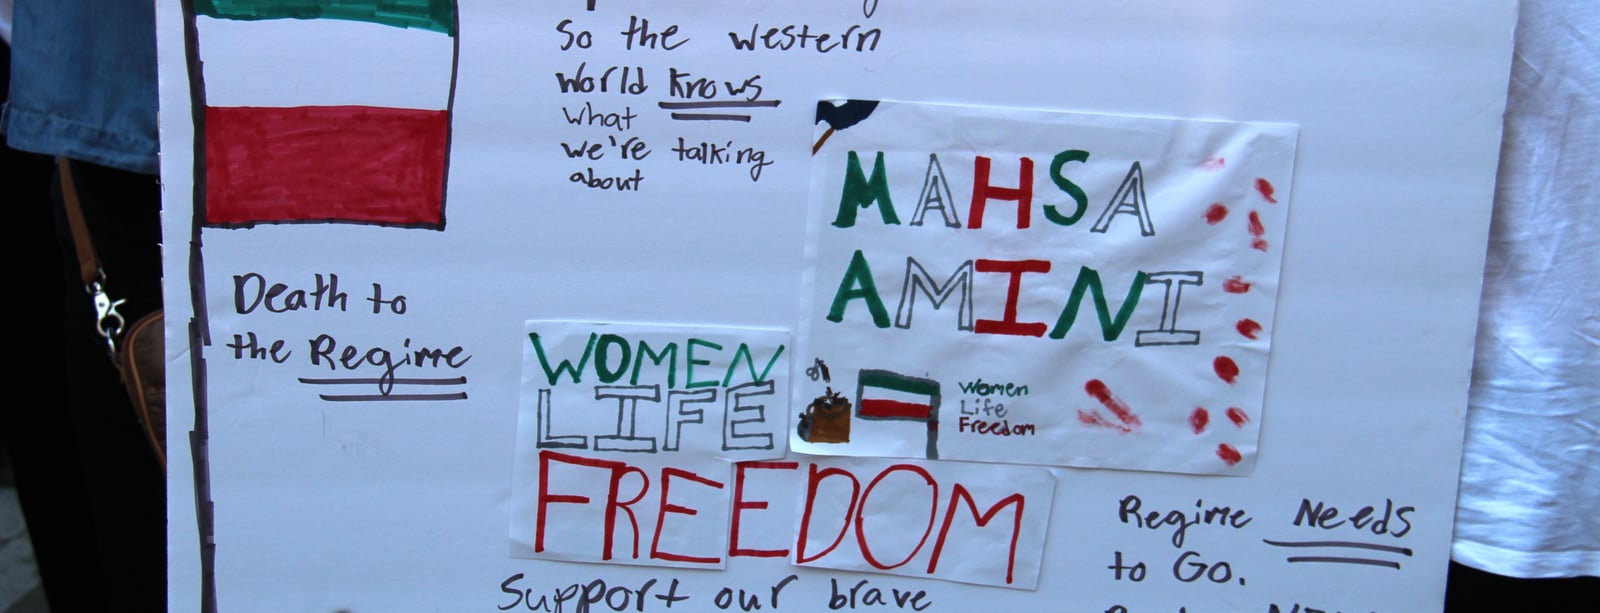 So the western
World Knows
What
we're talking
about
MAHSA
AMINI
Women
Life
Freedom
Death to
the Regime
WOMEN
LIFE
FREEDOM
Support our brave
Regime Needs
to Go.